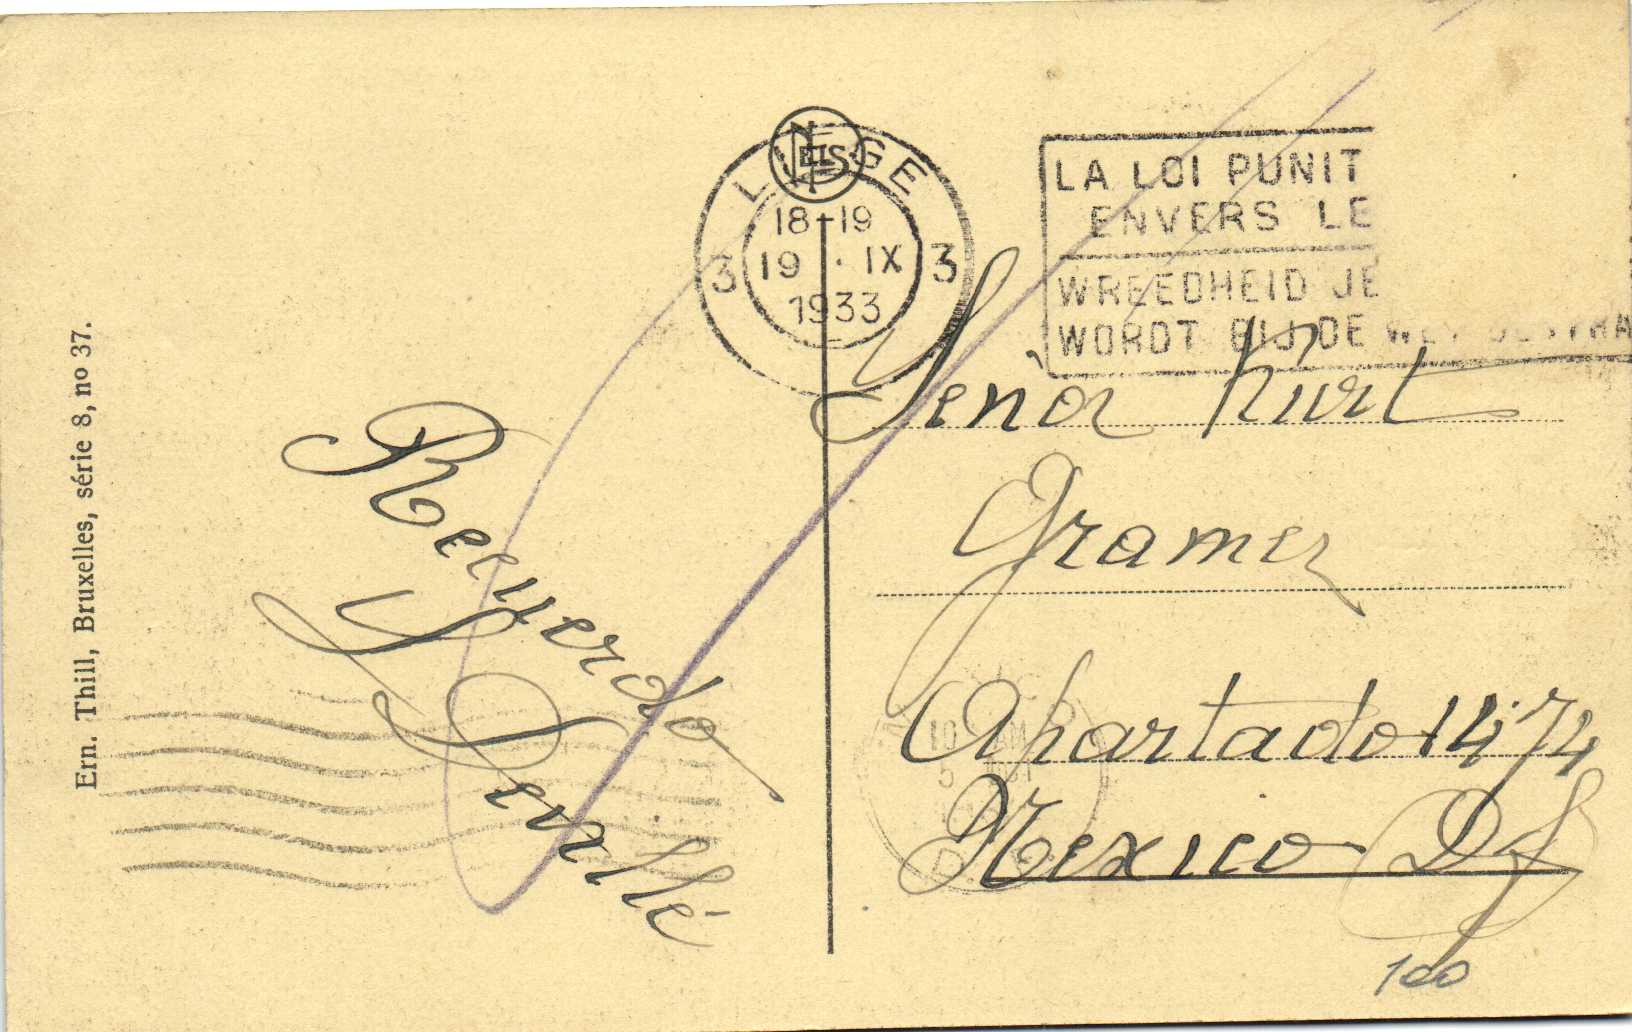 Ern. Thill, Bruxelles, série 8, no 37.
NELS
LIEGE
18-19
3 19 · IX 3
1933
LA LOI PUNIT
ENVERS LE
WREEDHEID JE
WORDT BIJ DE WET
Señor Kurt
Gramer
Apartado 1474
Mexico DF
Recuerdo
100